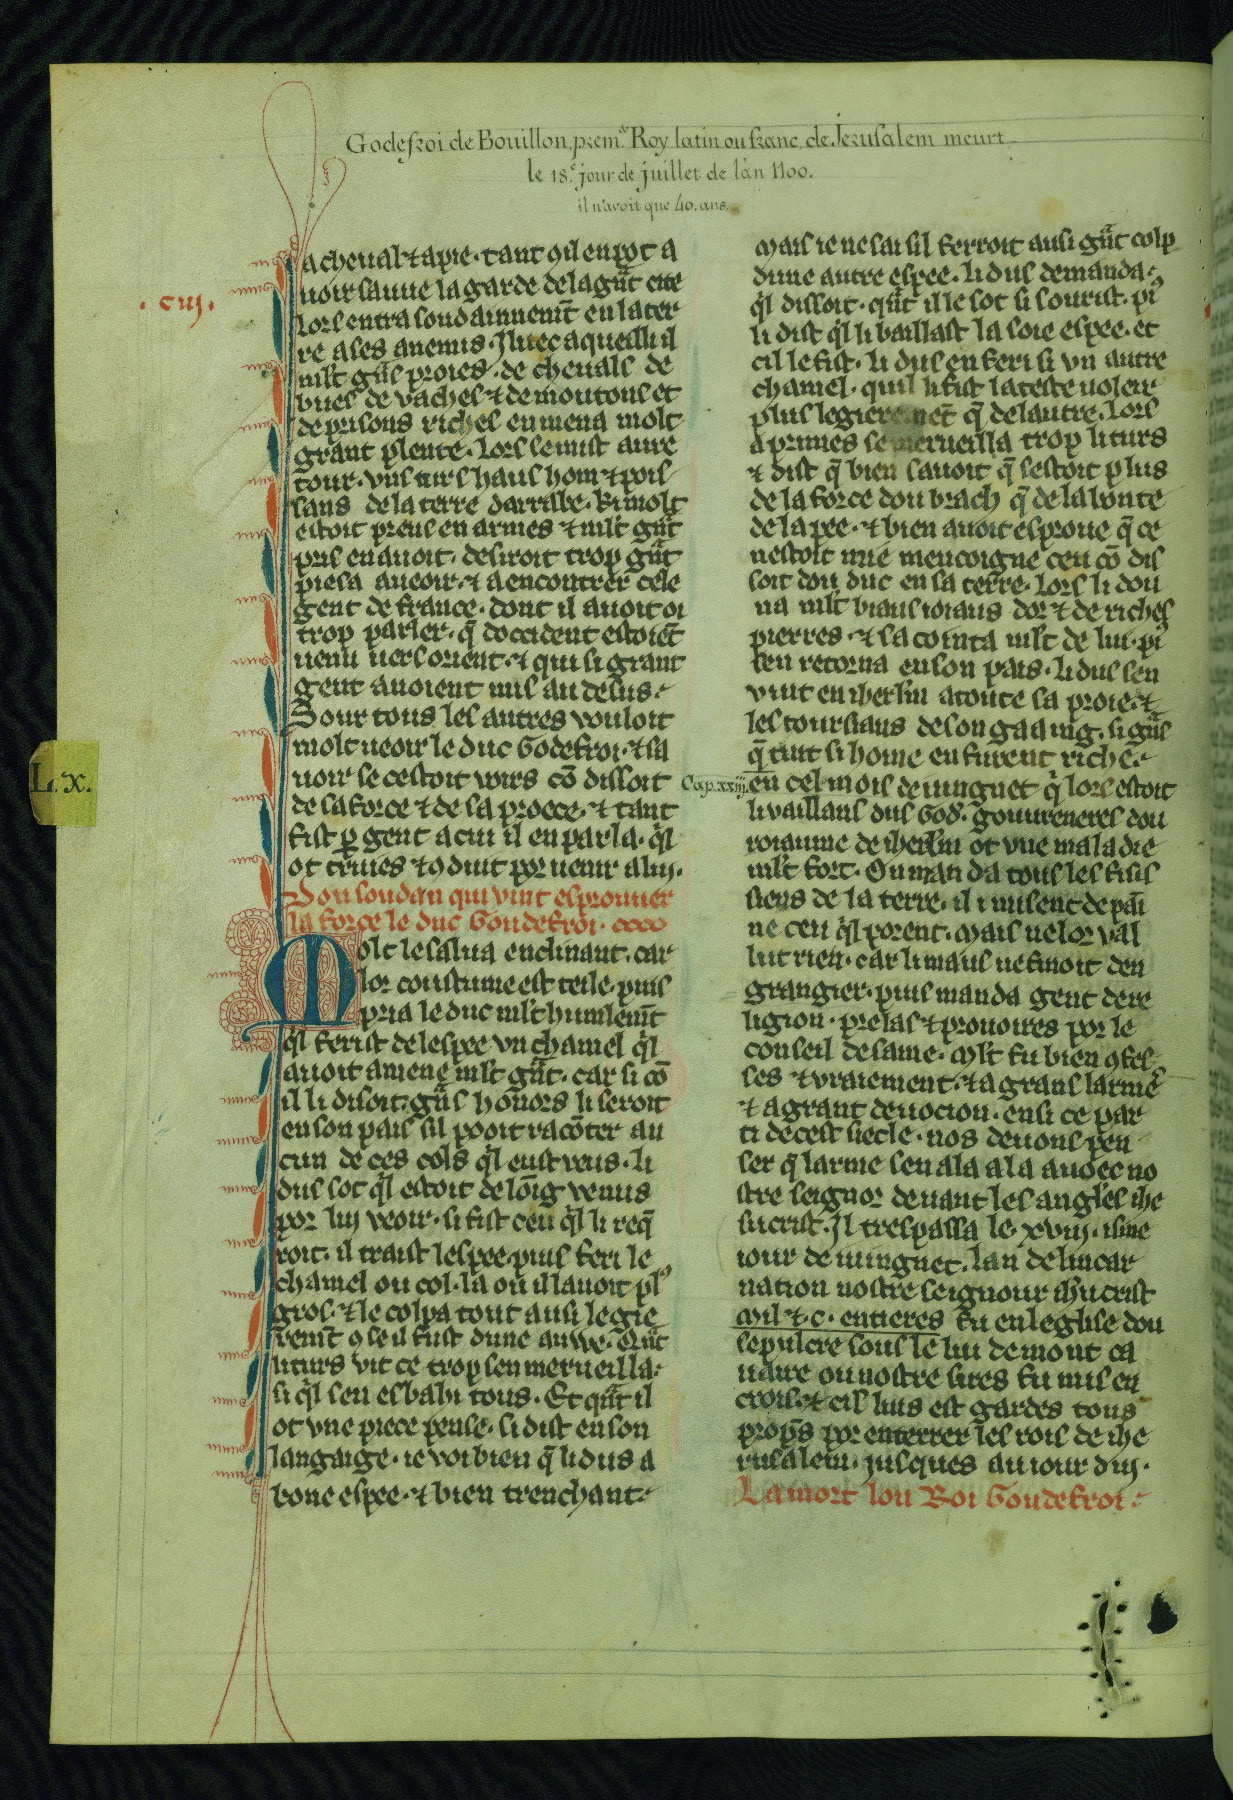 Godefroi de Bouillon, prem.r Roy latin ou franc, de Jerusalem meurt
le 18.e jour de juillet de l'an 1100.
il n'avoit que 40. ans.
a cheual ⁊ a pie· tant ꝯ il en pot a
uoir sauue la garde de la gr̃t cite
· cıɪȷ ·
lors entra soudainnemt̃ en la ter
re a ses anemis· Jluec aqueilli il
ml't gñs proies· de cheuals de
bues de vaches ⁊ de moutons et
de prisons riches en mena molt
grant plente· Lors se mist au re
tour· vns turs haus hom ⁊ pois
sans de la terre darrabe· ki molt
estoit preus en armes ⁊ ml't gñt
pris en auoit· desiroit trop gñt
piesa a ueoir· ⁊ a encontrer cele
gent de france· dont il auoit oi
trop parler· q̃ doccident estoiẽt
uenu uers orient· ⁊ qui si grant
gent auoient mis au desus·
Sour tous les autres vouloit
molt ueoir le duc Godefroi· ⁊ sa
uoir se cestoit voirs cõ dissoit
de sa force ⁊ de sa proece· ⁊ tant
fist ꝑ gent a cui il en parla· q̃l
ot triues ⁊ ꝯduit por uenir a lui·
Dou soudan qui vint esprouuer
la force le duc Goudefroi·
Molt le salua enclinant· car
lor coustume est tele· puis
pria le duc ml't humlemt̃
q̃l ferist de lespee vn chamel q̃l
auoit amene ml't gñt· car si cõ
il li disoit· gñs honors li seroit
en son pais sil pooit racõter au
cun de ces cols q̃l eust veus· li
dus sot q̃l estoit de loĩg venus
por lui veoir· si fist ceu q̃l li req̃
roit· il traist lespee· puis feri le
chamel ou col· la ou il lauoit pl9
gros· ⁊ le colpa tout ausi legie
remt̃ ꝯ se il fust dune auwe· Qñt
li turs vit ce trop sen merueilla·
si q̃l sen esbahi tous· Et qñt il
ot vne piece pense· si dist en son
langaige· ie voi bien q̃ li dus a
bone espee· ⁊ bien trenchant·
L. x.
Mais ie ne sai sil ferroit ausi gñt colp
dune autre espee· li dus demanda·
q̃l dissoit· qñt il le sot si sourist· pı9
li dist q̃l li baillast la soie espee· et
cil le fist· li dus en feri si vn autre
chamel· quil li fist la teste uoler
plus legieremẽt q̃ de lautre· Lors
a primes se merueilla trop li turs
⁊ dist q̃ bien sauoit q̃ sestoit plus
de la force dou brach q̃ de la bonte
de lapee· ⁊ bien auoit esproue q̃ ce
nestoit mie mencoigne ceu cõ dis
soit dou duc en sa terre· Lors li dou
na ml't biaus ioiaus dor ⁊ de riches
pierres· ⁊ sacointa ml't de lui· pı9
sen retorna en son pais· li dus sen
vint en iherl'm a toute sa proie· ⁊
les toursiaus de son gaaing· si gñs
q̃ tuit si home en furent riche·
Cap. xxiij. en cel mois de iunguet q̃ lors estoit
li vaillans dus God'· gouureneres dou
roiaume de iherl'm ot vne maladie
ml't fort· On manda tous les fisis
siens de la terre· il i misent de pai
ne ceu q̃l porent· Mais ne lor val
lut rien· car li maus ne finoit den
grangier· puis manda gent de re
ligion· prelas ⁊ prouoires por le
conseil de same· Ml't fu bien ꝯfes
ses ⁊ vraiement· ⁊ a grans larmes
⁊ a grant deuocion· ensi ce par
ti de cest siecle· nos deuons pen
ser q̃ larme sen ala a la auoec no
stre seignor deuant les angles ihe
sucrist· Jl trespassa le· xviij· isme
iour de iunguet· lan de lincar
nation nostre seignour ih'ucrist
Mil ⁊· c· entieres fu en leglise dou
sepulcre sous le liu de mont ca
uaire ou nostre sires fu mis en
crois· ⁊ cil luis est gardes tous
prop̃s por enterrer les rois de ihe
rusalem· jusques au iour dui·
La mort lou Roi Goudefroi·